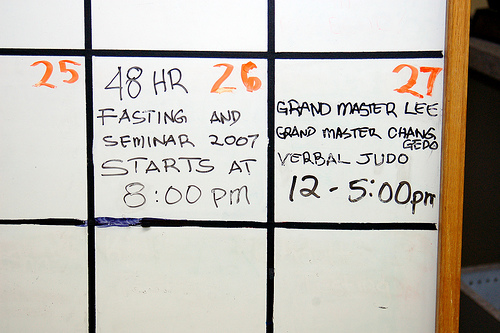 25
48 HR 26
FASTING AND
SEMINAR 2007
STARTS AT
8:00 pm
27
GRAND MASTER LEE
GRAND MASTER CHANG
GEDO
VERBAL JUDO
12 - 5:00pm